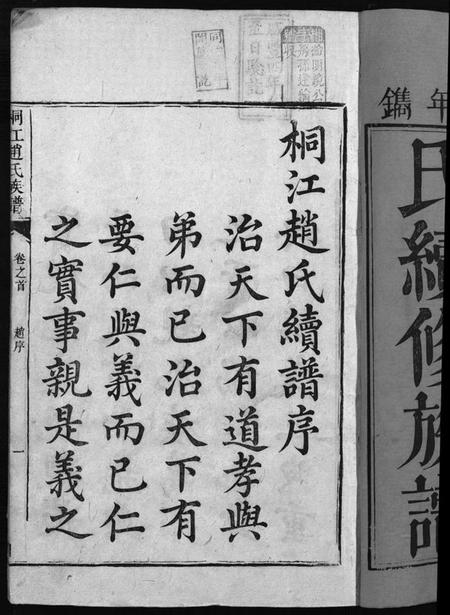 年
鐫
氏續修族譜
桐江趙氏續譜序
治天下有道孝與
弟而已治天下有
要仁與義而已仁
之實事親是義之
桐江趙氏族譜
卷之首
趙序
一